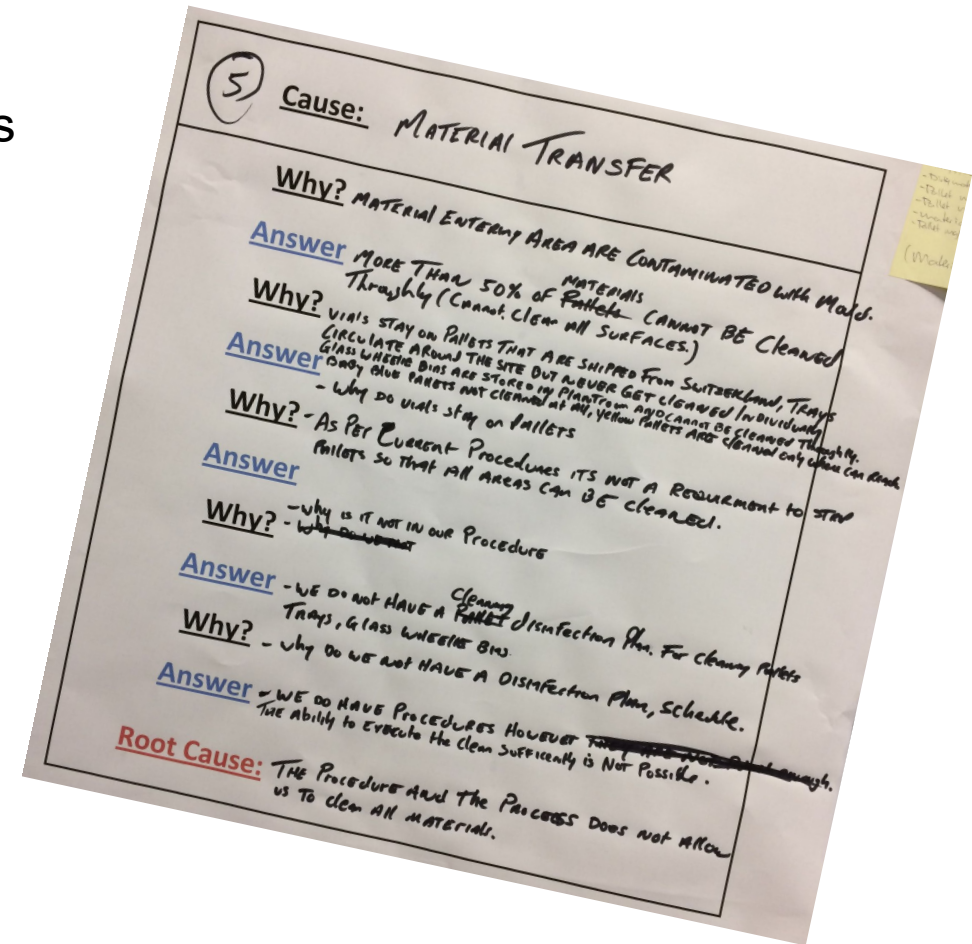 s
5 Cause: MATERIAL TRANSFER
Why? MATERIAL ENTERING AREA ARE CONTAMINATED with Mold.
Answer MORE THAN 50% of Pallets MATERIALS CANNOT BE CLEANED
Throughly (Cannot. Clean All SURFACES.)
Why? VIALS STAY ON PALLETS THAT ARE SHIPPED FROM SWITZERLAND, TRAYS
CIRCULATE AROUND THE SITE BUT NEVER GET CLEANED INDIVIDUALLY
Answer GLASS WHEELIE BINS ARE STORED IN PLANTROOM AND CANNOT BE CLEANED Throughly.
BABY BLUE PALLETS NOT CLEANED at All, yellow PALLETS ARE CLEANED only where Can Reach
Why? - Why DO VIALS STAY on PALLETS
Answer - AS PER CURRENT PROCEDURES ITS NOT A REQUIRMENT to STRIP
PALLETS SO THAT All AREAS CAN BE CLEANED.
Why? - why IS IT NOT IN OUR PROCEDURE
- Why DO WE NOT
Answer - WE DO NOT HAVE A PALLET Cleaning disinfection Plan. For Cleaning Pallets
TRAYS, GLASS WHEELIE BINS.
Why? - why DO WE NOT HAVE A DISINFECTION Plan, Schedule.
Answer - WE DO HAVE PROCEDURES HOWEVER
THE Ability to EXECUTE the Clean SUFFICENTLY is NOT Possible.
Root Cause: THE PROCEDURE AND The PROCESS DOES NOT Allow
us To clean All MATERIALS.
- Pallet
- Pallet